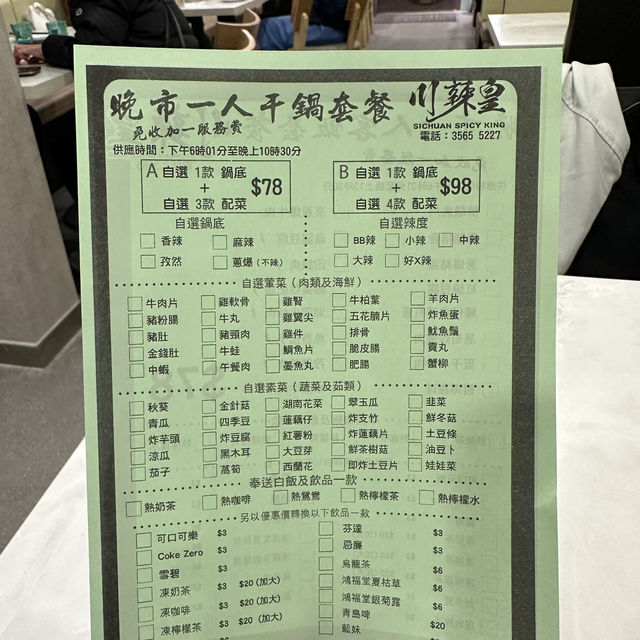 晚市一人干鍋套餐 川辣皇
免收加一服務費 SICHUAN SPICY KING
電話：3565 5227
供應時間：下午6時01分至晚上10時30分
A 自選 1款 鍋底 + 自選 3款 配菜 $78
B 自選 1款 鍋底 + 自選 4款 配菜 $98
自選鍋底 自選辣度
香辣 麻辣 BB辣 小辣 中辣
孜然 蔥爆(不辣) 大辣 好X辣
自選葷菜（肉類及海鮮）
牛肉片 雞軟骨 雞腎 牛柏葉 羊肉片
豬粉腸 牛丸 雞翼尖 五花腩片 炸魚蛋
豬肚 豬頸肉 雞件 排骨 魷魚鬚
金錢肚 牛蛙 鯛魚片 脆皮腸 貢丸
中蝦 午餐肉 墨魚丸 肥腸 蟹柳
自選素菜（蔬菜及菇類）
秋葵 金針菇 湖南花菜 翠玉瓜 韭菜
青瓜 四季豆 蓮藕仔 炸支竹 鮮冬菇
炸芋頭 炸豆腐 紅薯粉 炸蓮藕片 土豆條
涼瓜 黑木耳 大豆芽 鮮茶樹菇 油豆卜
茄子 萵筍 西蘭花 即炸土豆片 娃娃菜
奉送白飯及飲品一款
熱奶茶 熱咖啡 熱鴛鴦 熱檸檬茶 熱檸檬水
另以優惠價轉換以下飲品一款
可口可樂 $3 芬達 $3
Coke Zero $3 忌廉 $3
雪碧 $3 烏龍茶 $6
凍奶茶 $3 $20 (加大) 鴻福堂夏枯草 $6
凍咖啡 $3 $20 (加大) 鴻福堂銀菊露 $6
凍檸檬茶 $3 $20 (加大) 青島啤 $20
藍妹